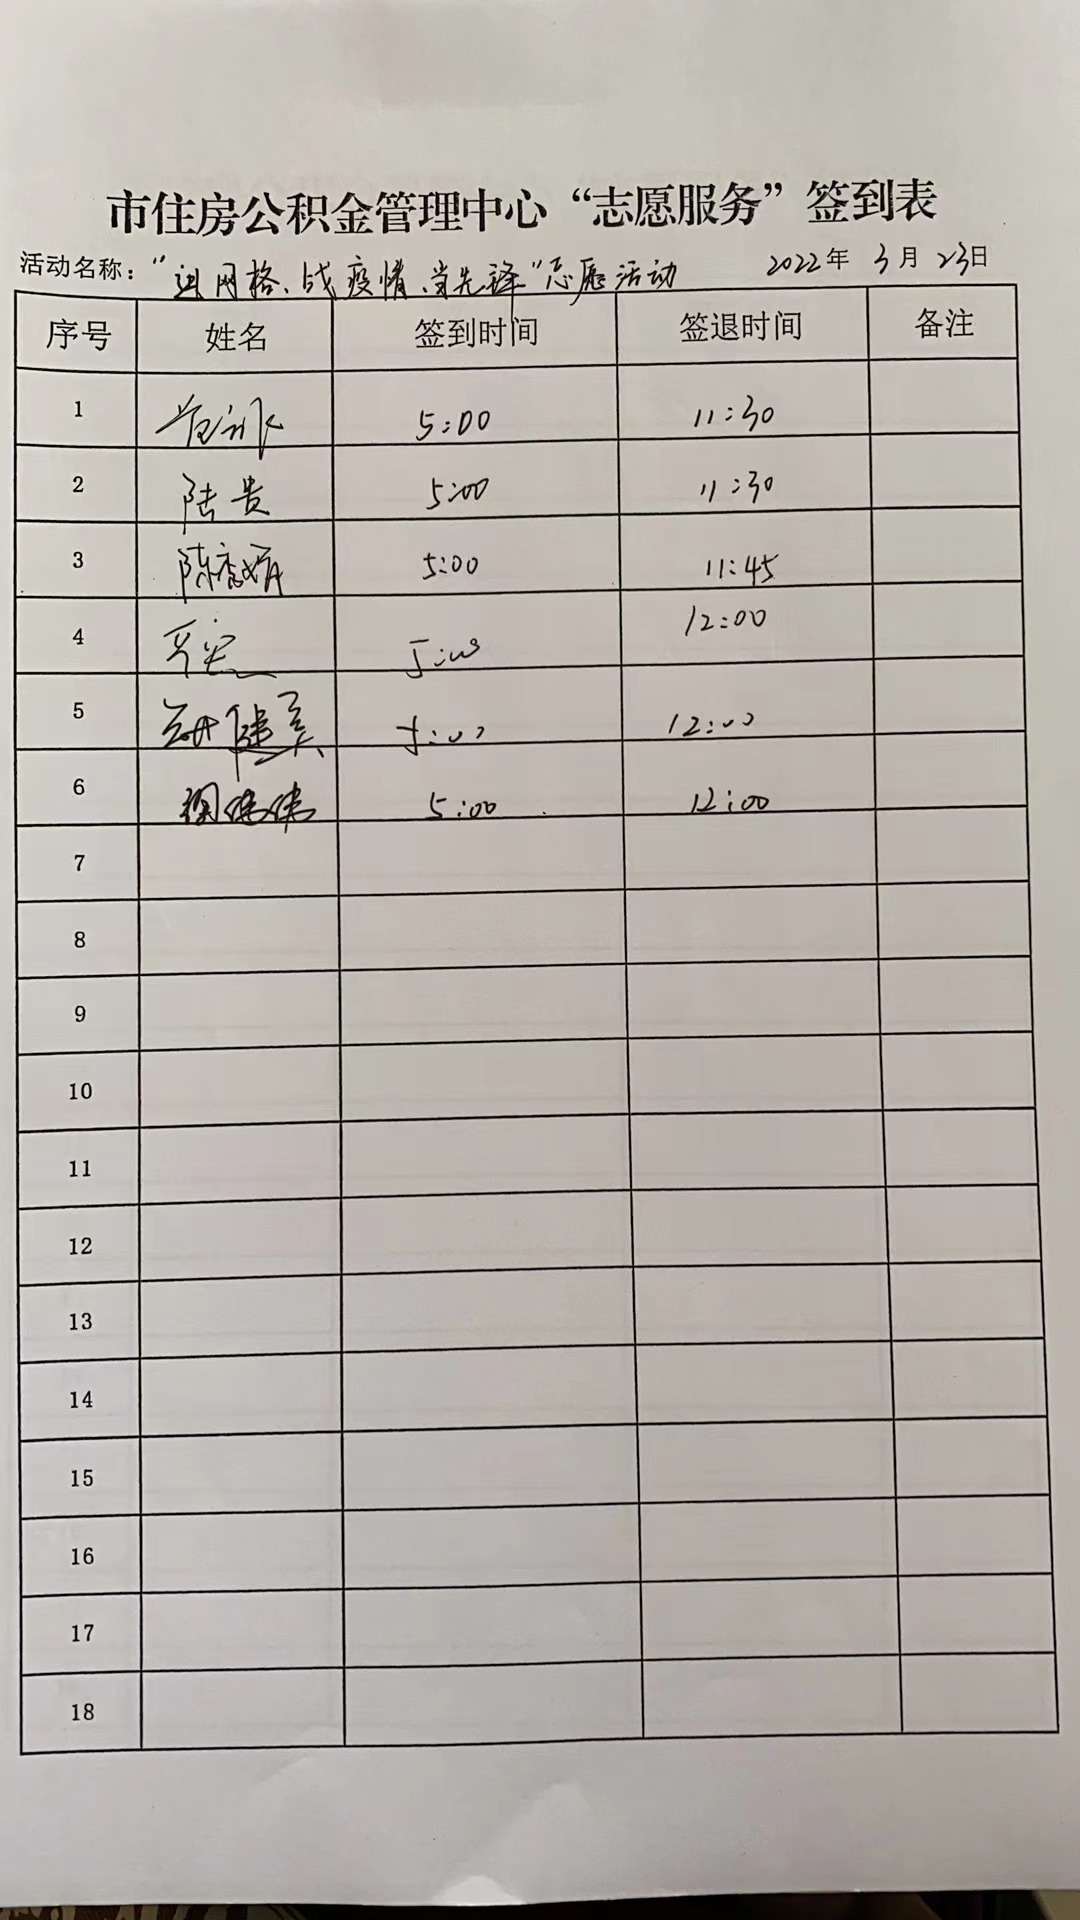 市住房公积金管理中心“志愿服务”签到表
活动名称：“进网格、战疫情、当先锋”志愿活动 2022年3月23日
序号 姓名 签到时间 签退时间 备注
1 5:00 11:30
2 陆贵 5:00 11:30
3 5:00 11:45
4 5:00 12:00
5 5:00 12:00
6 5:00 12:00
7
8
9
10
11
12
13
14
15
16
17
18